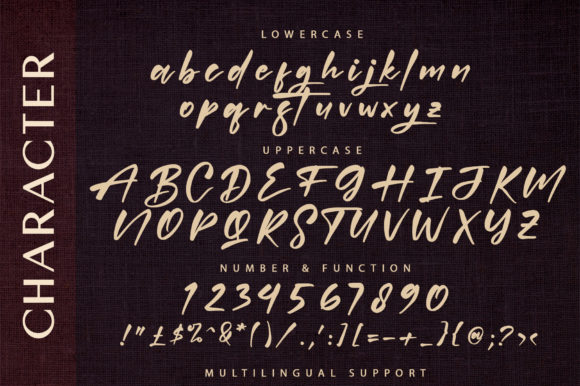 CHARACTER
LOWERCASE
abcdefghijklmn
opqrstuvwxyz
UPPERCASE
ABCDEFGHIJKM
NOPQRSTUVWXYZ
NUMBER & FUNCTION
1234567890
!"£$%^&*()/.,':;][=-+_}{@;?><
MULTILINGUAL SUPPORT